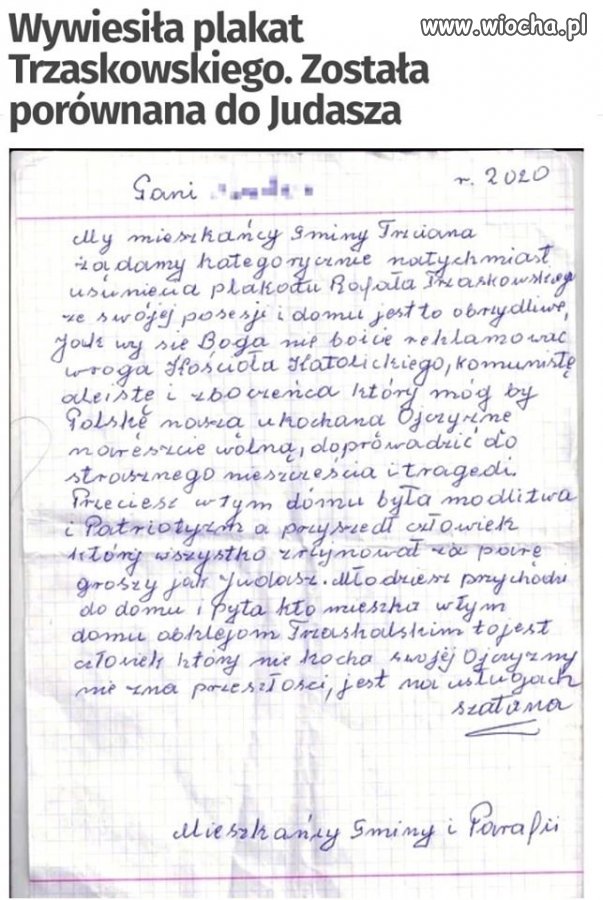 www.wiocha.pl
Wywiesiła plakat
Trzaskowskiego. Została
porównana do Judasza
Pani
r. 2020
My mieszkańcy Gminy Trzciana
żądamy kategorycznie natychmiast
usunięcia plakatu Rafała Trzaskowskiego
ze swojej posesji i domu jest to obrzydliwe,
jak wy się Boga nie boicie reklamować
wroga Kościoła Katolickiego, komunistę
ateistę i zboczeńca który móg by
Polskę naszą ukochana Ojczyznę
nareszcie wolną, doprowadzić do
strasznego nieszczęścia i tragedi.
Przeciesz w tym domu była modlitwa
i Patriotyzm a przyszedł człowiek
który wszystko zrujnował za parę
groszy jak Judasz. Młodziesz przychodzi
do domu i pyta kto mieszka w tym
domu obklejom Trzaskalskim to jest
człowiek który nie kocha swojej Ojczyzny
nie zna przeszłości, jest na usługach
szatana
Mieszkańcy Gminy i Parafii